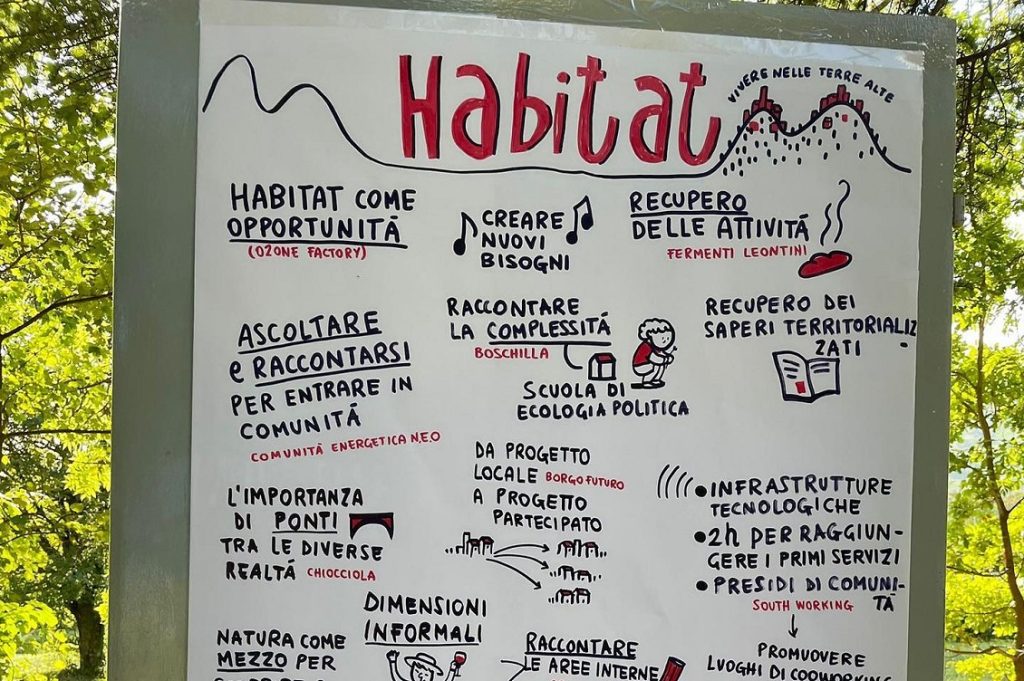 Habitat
VIVERE NELLE TERRE ALTE
HABITAT COME
OPPORTUNITÁ
(OZONE FACTORY)
CREARE
NUOVI
BISOGNI
RECUPERO
DELLE ATTIVITÁ
FERMENTI LEONTINI
ASCOLTARE
e RACCONTARSI
PER ENTRARE IN
COMUNITÁ
COMUNITÁ ENERGETICA N.E.O
RACCONTARE
LA COMPLESSITÁ
BOSCHILLA
SCUOLA DI
ECOLOGIA POLITICA
RECUPERO DEI
SAPERI TERRITORIALIZ
ZATI
L'IMPORTANZA
DI PONTI
TRA LE DIVERSE
REALTÁ CHIOCCIOLA
DA PROGETTO
LOCALE BORGOFUTURO
A PROGETTO
PARTECIPATO
• INFRASTRUTTURE
TECNOLOGICHE
• 2h PER RAGGIUN-
GERE I PRIMI SERVIZI
• PRESIDI DI COMUNI-
TÁ
SOUTH WORKING
PROMUOVERE
LUOGHI DI COWORKING
DIMENSIONI
INFORMALI
NATURA COME
MEZZO PER
RACCONTARE
LE AREE INTERNE